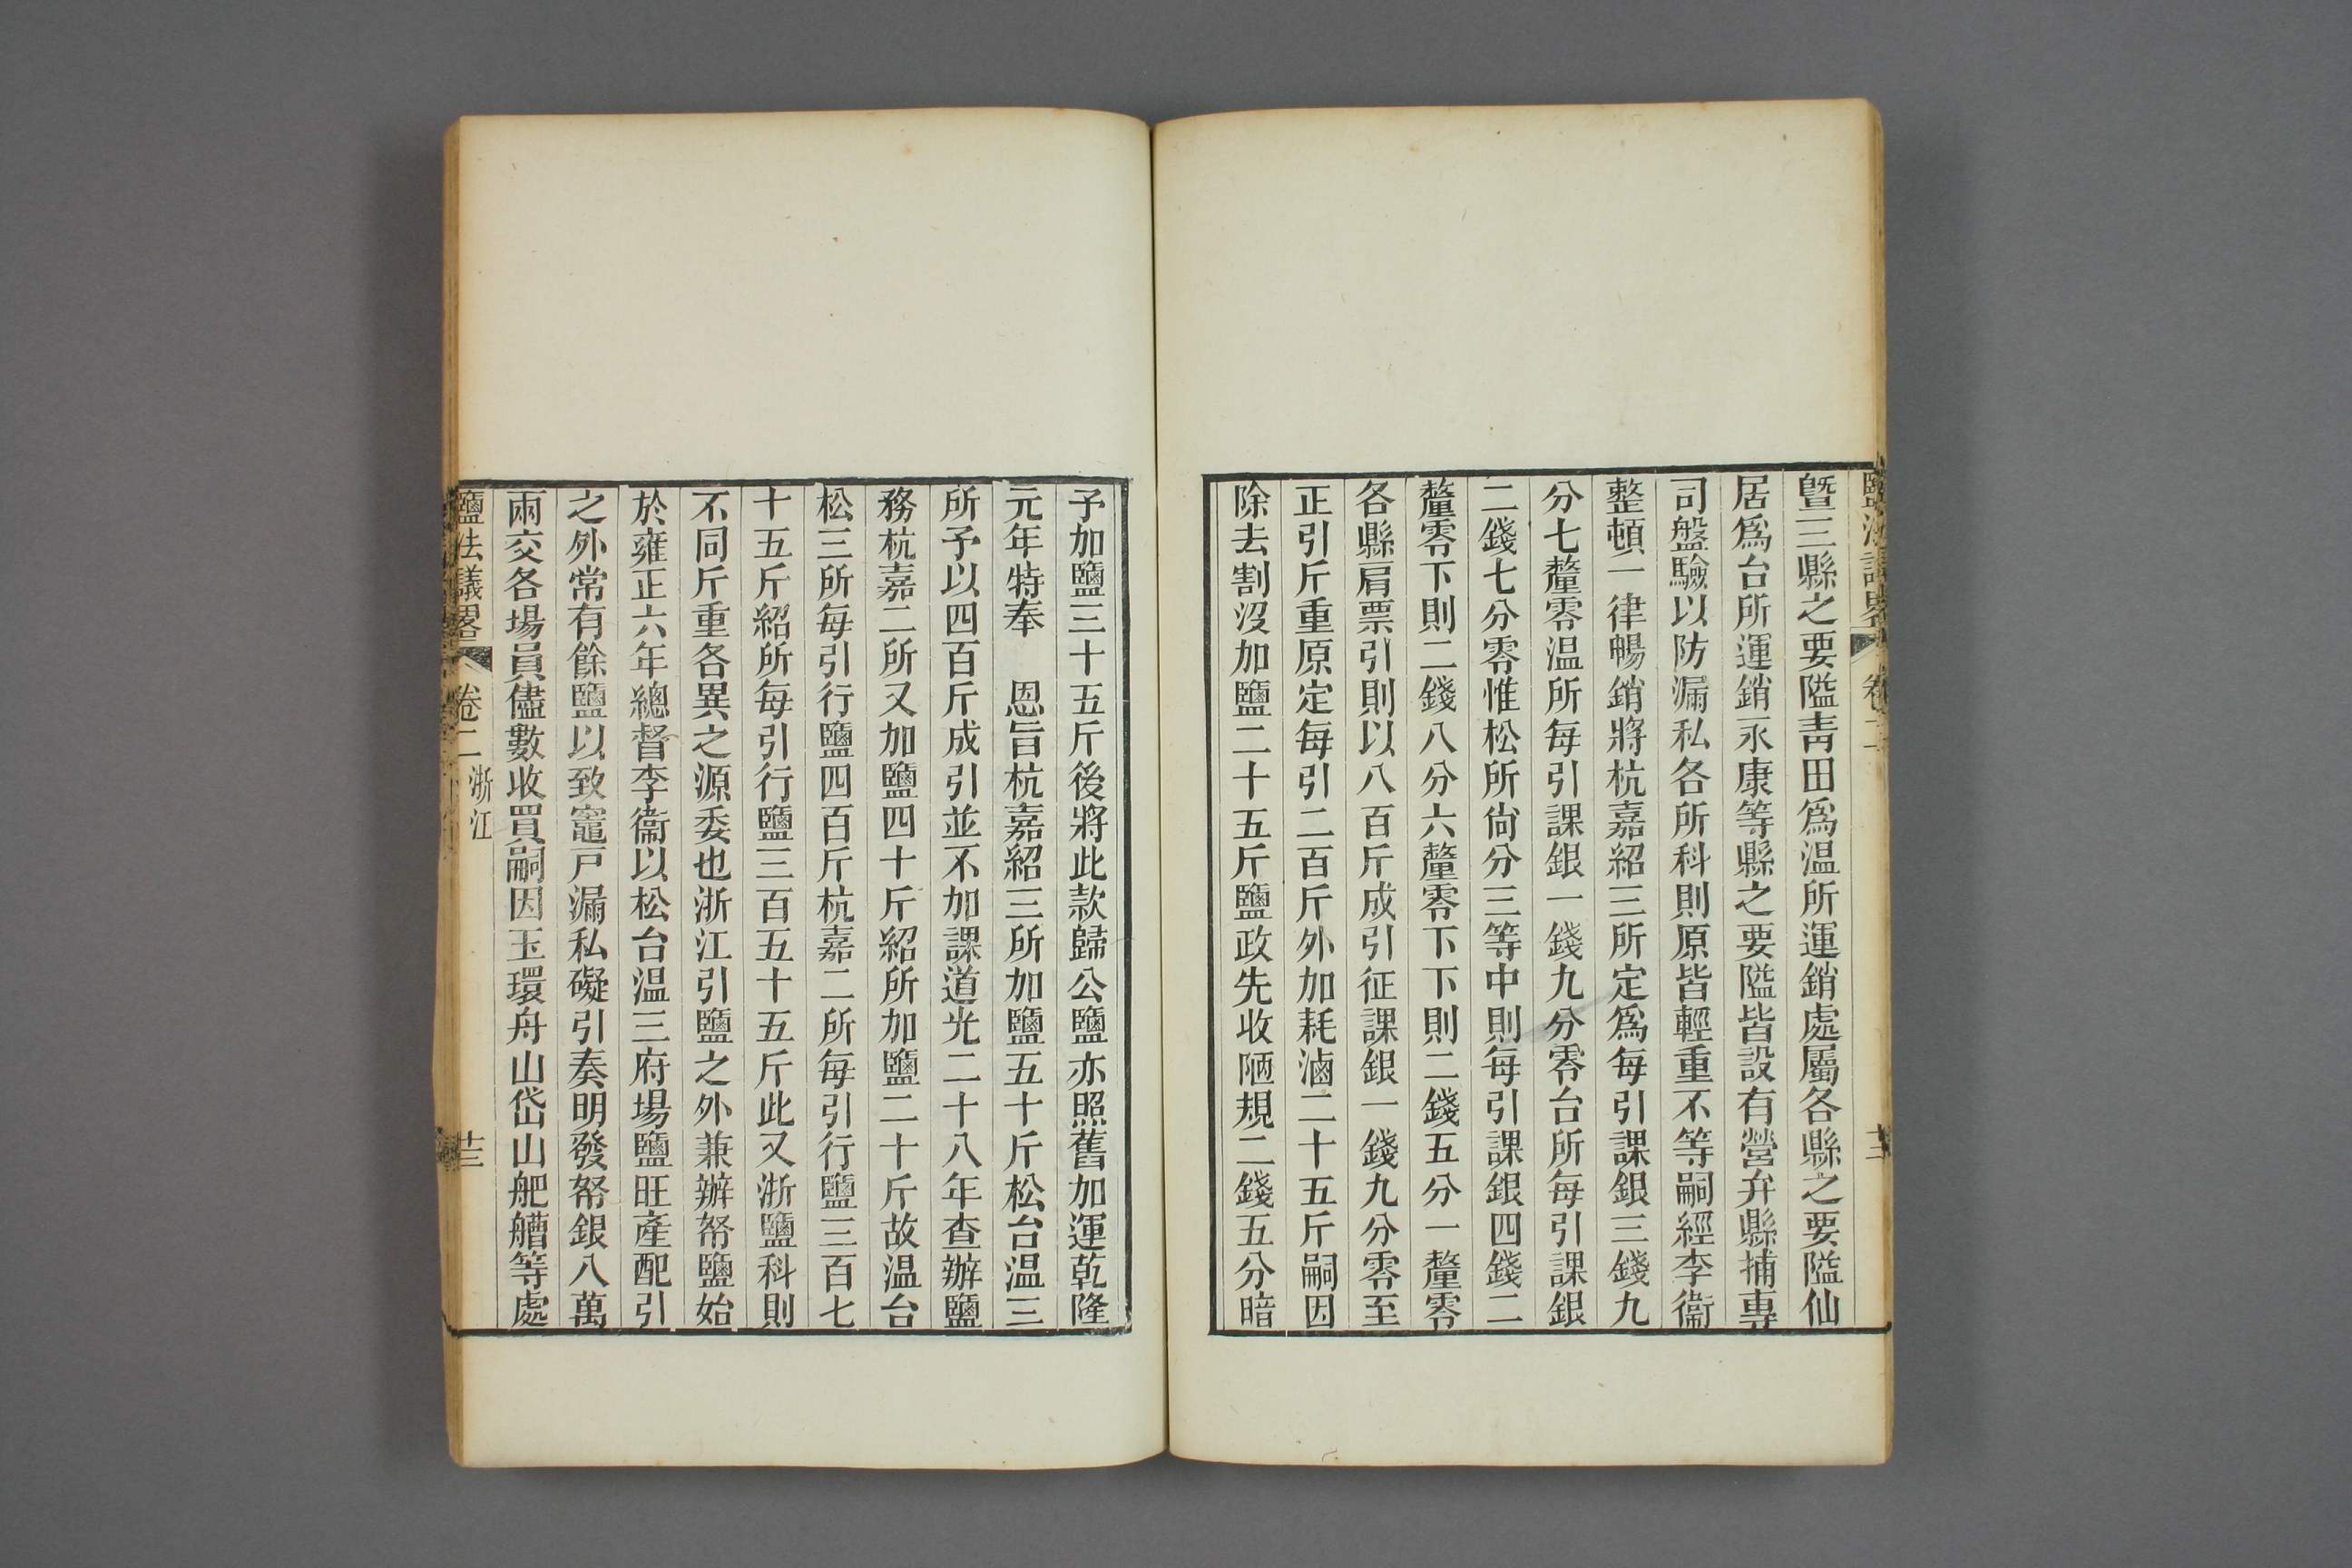 曁三縣之要隘靑田爲温所運銷處屬各縣之要隘仙
居爲台所運銷永康等縣之要隘皆設有營弁縣捕專
司盤驗以防漏私各所科則原皆輕重不等嗣經李衞
整頓一律暢銷將杭嘉紹三所定爲每引課銀三錢九
分七釐零温所每引課銀一錢九分零台所每引課銀
二錢七分零惟松所尙分三等中則每引課銀四錢二
釐零下則二錢八分六釐零下下則二錢五分一釐零
各縣肩票引則以八百斤成引征課銀一錢九分零至
正引斤重原定每引二百斤外加耗滷二十五斤嗣因
除去割沒加鹽二十五斤鹽政先收陋規二錢五分暗
予加鹽三十五斤後將此款歸公鹽亦照舊加運乾隆
元年特奉　恩旨杭嘉紹三所加鹽五十斤松台温三
所予以四百斤成引並不加課道光二十八年查辦鹽
務杭嘉二所又加鹽四十斤紹所加鹽二十斤故温台
松三所每引行鹽四百斤杭嘉二所每引行鹽三百七
十五斤紹所每引行鹽三百五十五斤此又浙鹽科則
不同斤重各異之源委也浙江引鹽之外兼辦帑鹽始
於雍正六年總督李衞以松台温三府場鹽旺產配引
之外常有餘鹽以致竈戸漏私礙引奏明發帑銀八萬
兩交各場員儘數收買嗣因玉環舟山岱山舥艚等處
鹽法議畧　卷二　浙江　廿三